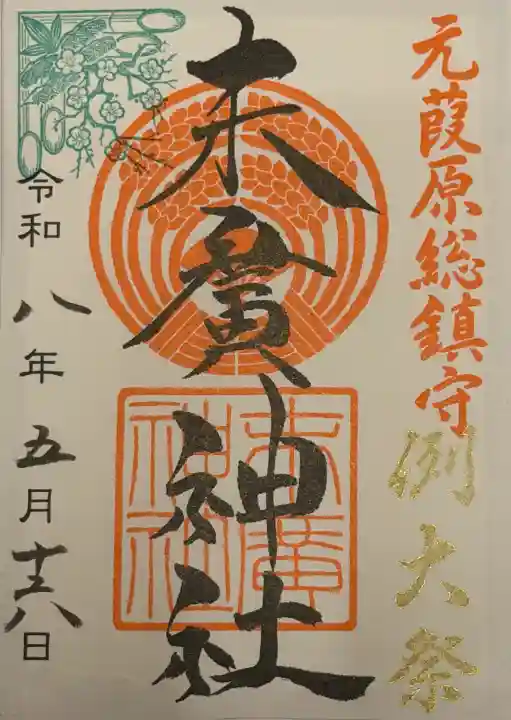 元葭原総鎮守
例大祭
末廣神社
末廣
神社
令和八年五月十六日